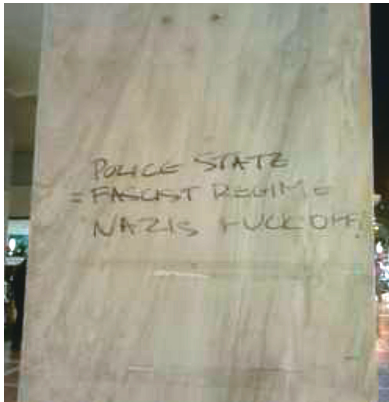 POLICE STATE
= FASCIST REGIME
NAZIS FUCK OFF!